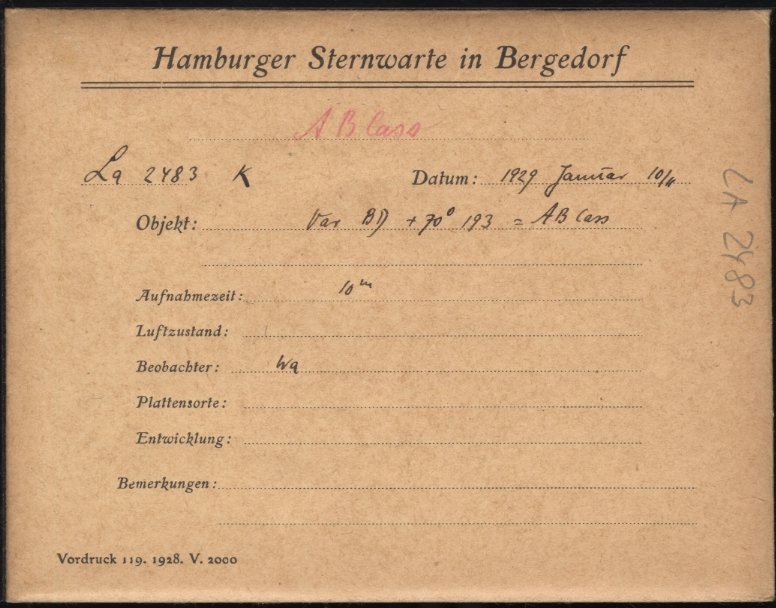 Hamburger Sternwarte in Bergedorf
AB Cass
La 2483 K Datum: 1929 Januar 10/11
Objekt: Var BD +70° 193 = AB Cass
Aufnahmezeit: 10ᵐ
Luftzustand:
Beobachter: Wa
Plattensorte:
Entwicklung:
Bemerkungen:
Vordruck 119. 1928. V. 2000
LA 2483